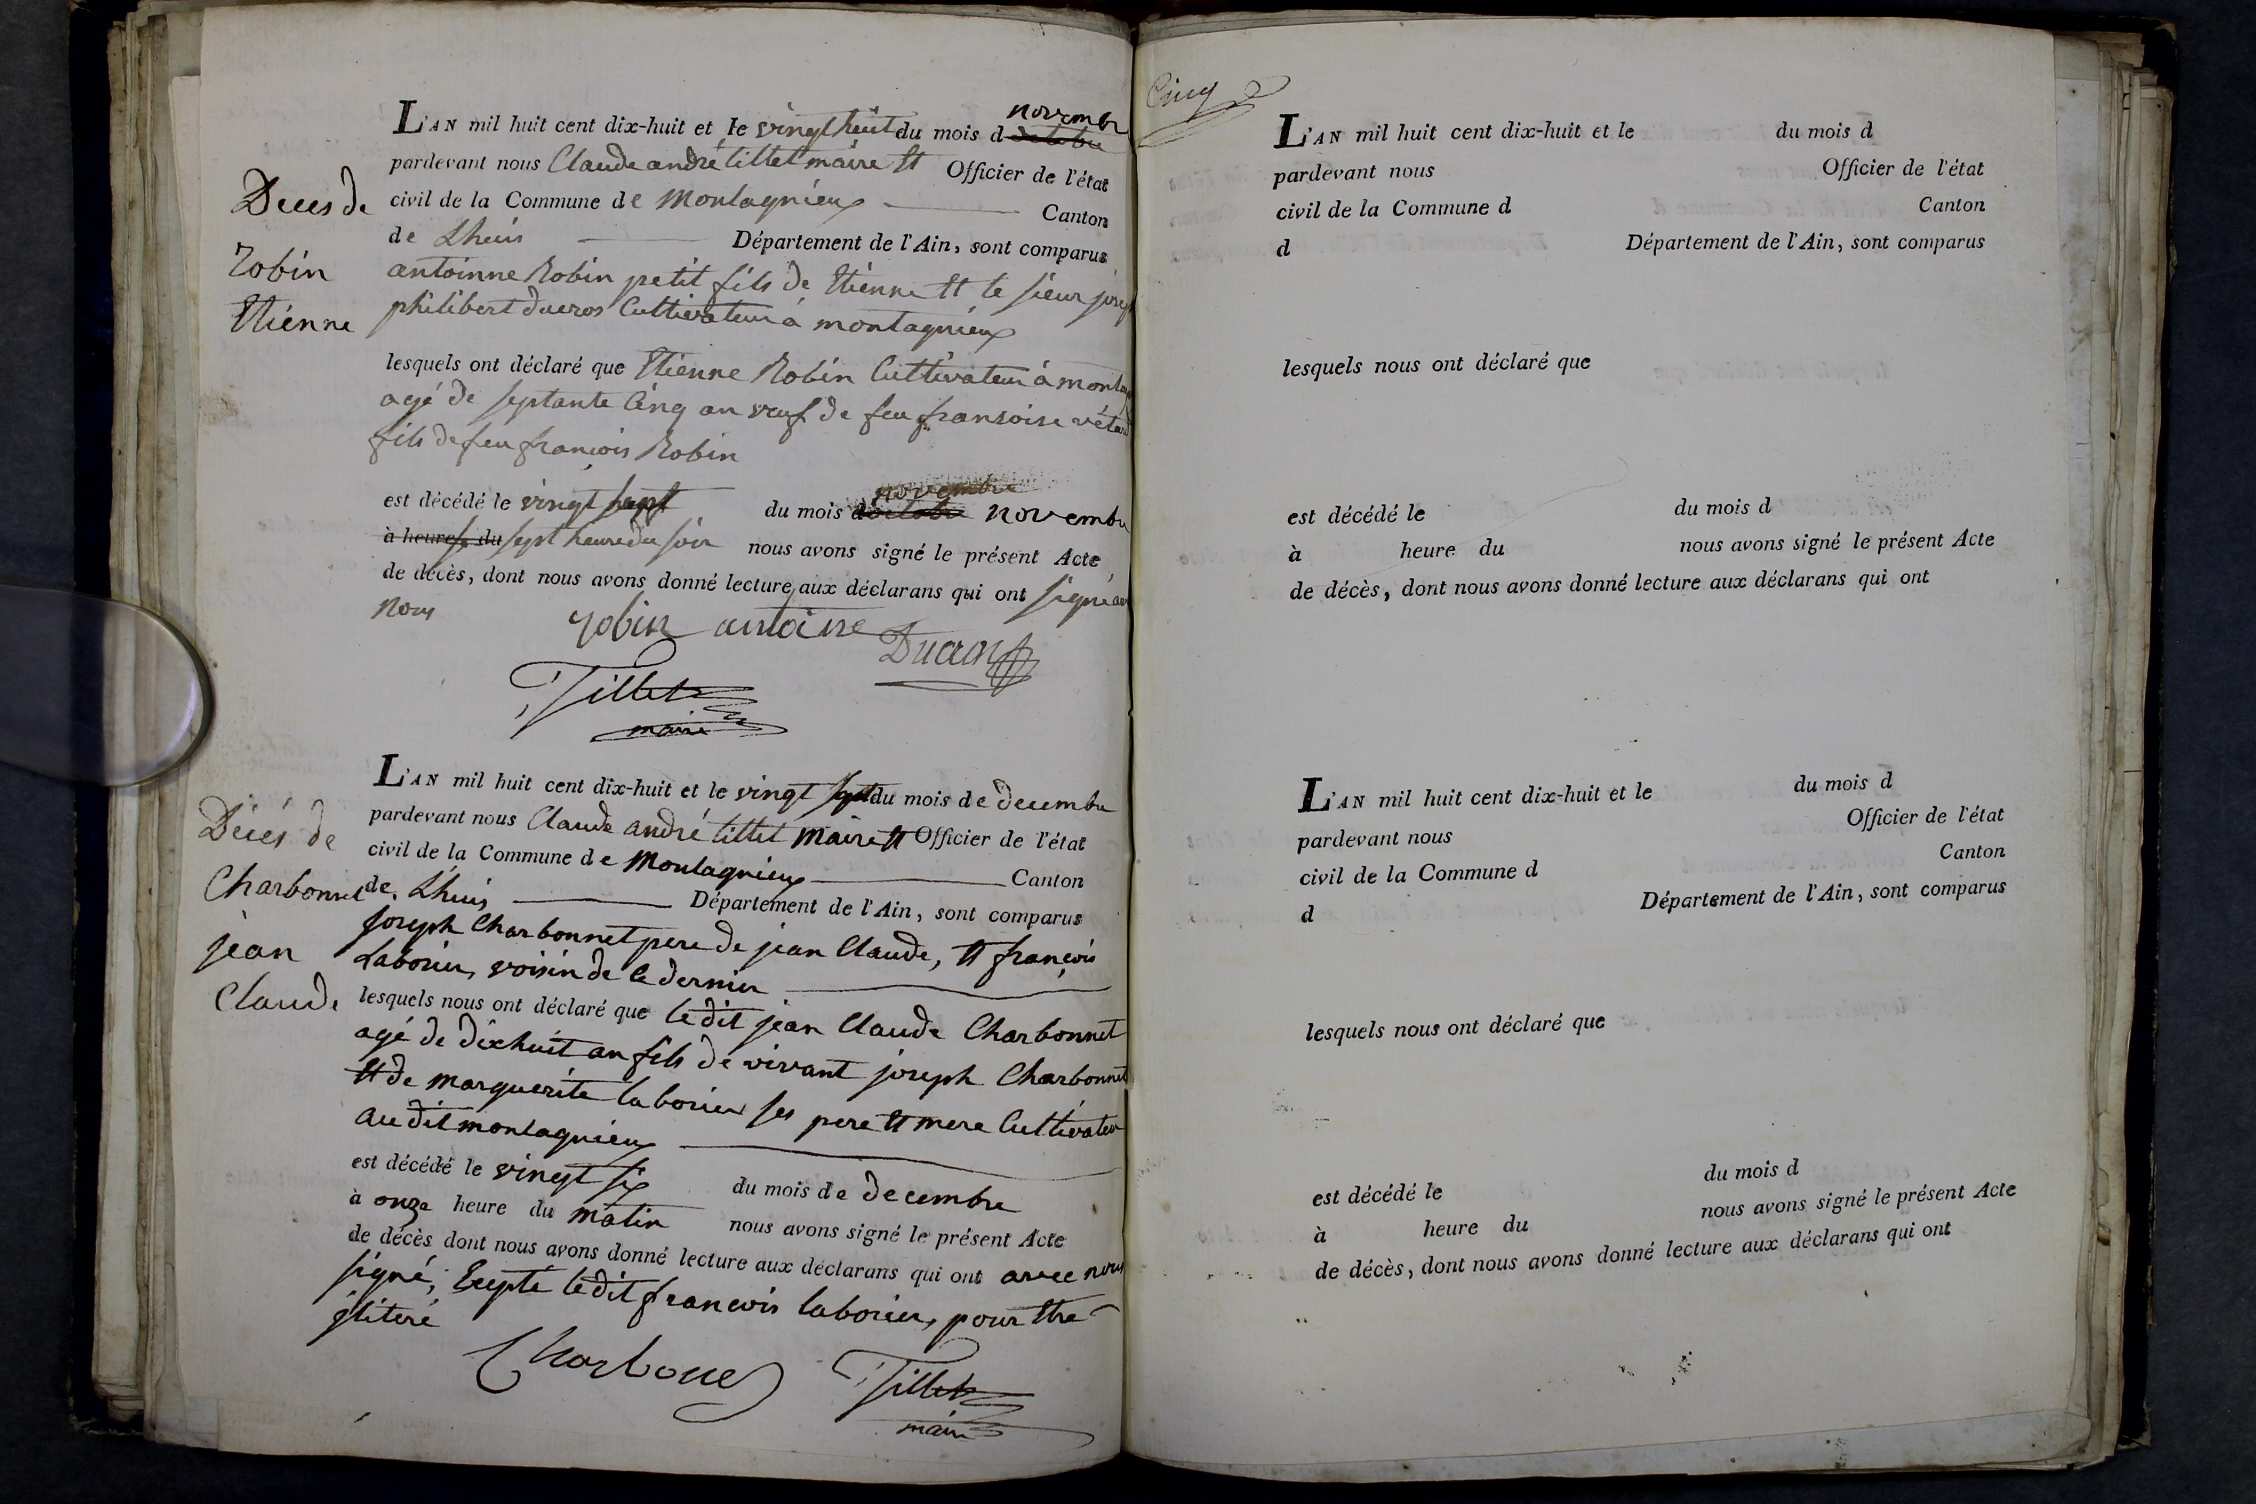 L'AN mil huit cent dix-huit et le vingt huit du mois d octobre novembre
pardevant nous Claude andré tillet maire et Officier de l'état
civil de la Commune de Montagnieux Canton
de Lhuis Département de l'Ain, sont comparus
Deces de
Robin
Etienne
antoinne Robin petit fils de Etienne et le sieur
philibert ducros Cultivateur a montagnieux
lesquels ont déclaré que Etienne Robin Cultivateur á
agé de septante Cinq an veuf de feu fransoise
fils de feu francois Robin
est décédé le vingt sept du mois d'octobre novembre novembre
à heures du sept heure du soir nous avons signé le présent Acte
de décès, dont nous avons donné lecture aux déclarans qui ont signé
Nous
robin antoine
Ducros
Tillet
maire
L'AN mil huit cent dix-huit et le vingt sept du mois de decembre
pardevant nous Claude andré tillet Maire et Officier de l'état
civil de la Commune de Montagnieux Canton
de Lhuis Département de l'Ain, sont comparus
Décés de
Charbonnet
jean
Claude
joseph Charbonnet pere de jean Claude, et françois
Laborier, voisin de ce dernier
lesquels nous ont déclaré que ledit jean Claude Charbonnet
agé de dixhuit an fils de vivant joseph Charbonnet
et de marguerite laborier ses pere et mere Cultivateur
audit montagnieux
est décédé le vingt six du mois de decembre
à onze heure du matin nous avons signé le présent Acte
de décès dont nous avons donné lecture aux déclarans qui ont avec nous
signé, Exepté ledit francois laborier, pour etre
iliteré
Charbonnet
Tillet
maire
Cinq
L'AN mil huit cent dix-huit et le du mois d
pardevant nous Officier de l'état
civil de la Commune d Canton
d Département de l'Ain, sont comparus
lesquels nous ont déclaré que
est décédé le du mois d
à heure du nous avons signé le présent Acte
de décès, dont nous avons donné lecture aux déclarans qui ont
L'AN mil huit cent dix-huit et le du mois d
pardevant nous Officier de l'état
civil de la Commune d Canton
d Département de l'Ain, sont comparus
lesquels nous ont déclaré que
est décédé le du mois d
à heure du nous avons signé le présent Acte
de décès, dont nous avons donné lecture aux déclarans qui ont